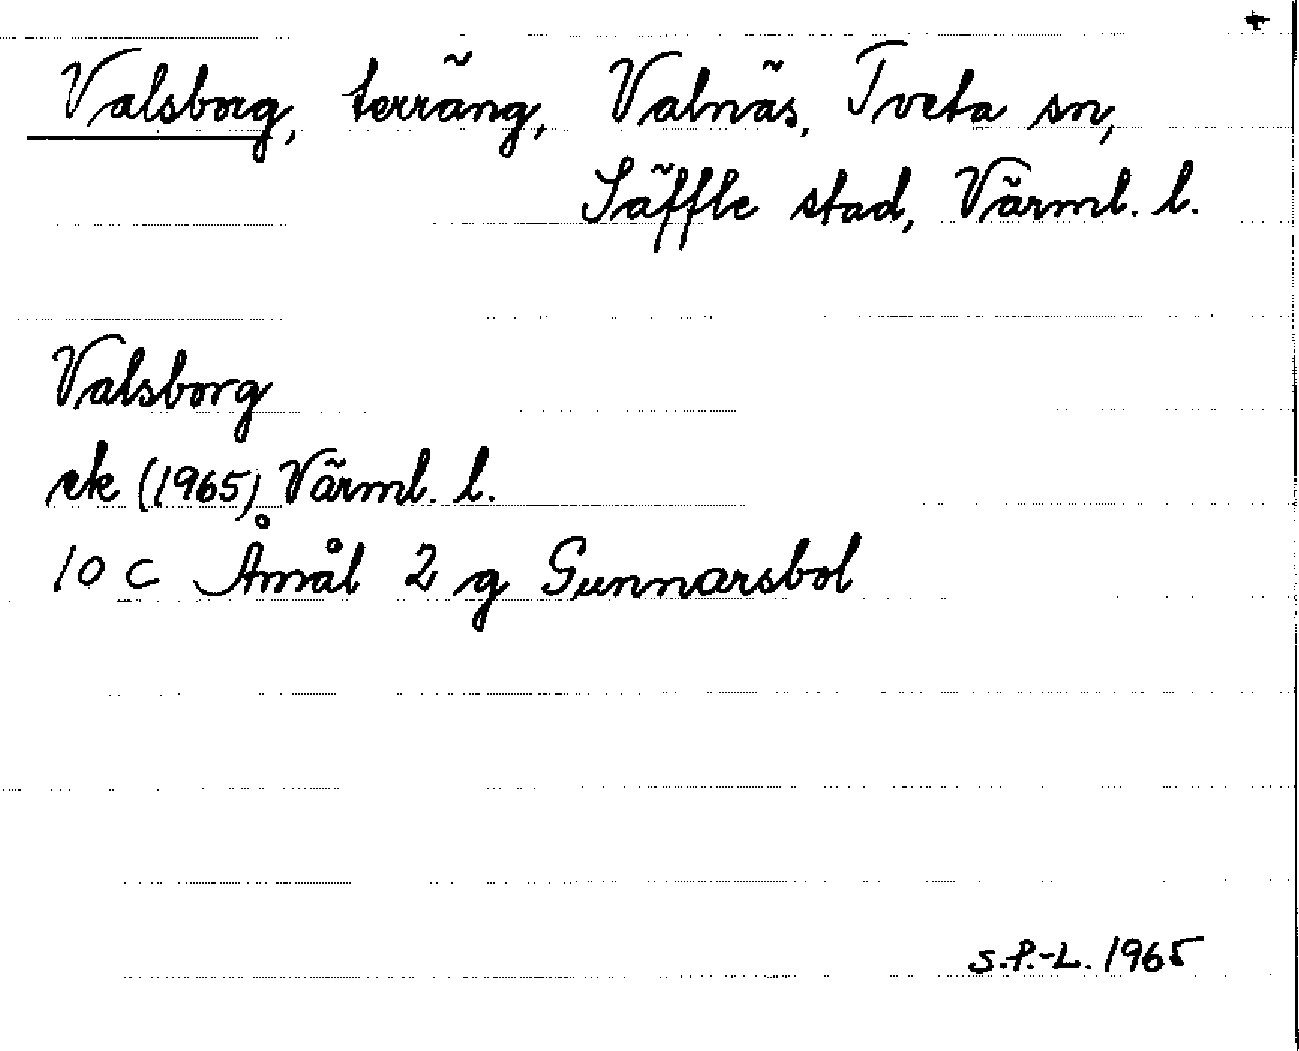 +
Valsborg, terräng, Valnäs, Tveta sn,
Säffle stad, Värml. l.
Valsborg
ek (1965) Värml. l.
10 C Åmål 2 g Gunnarsbol
S.P.-L. 1965